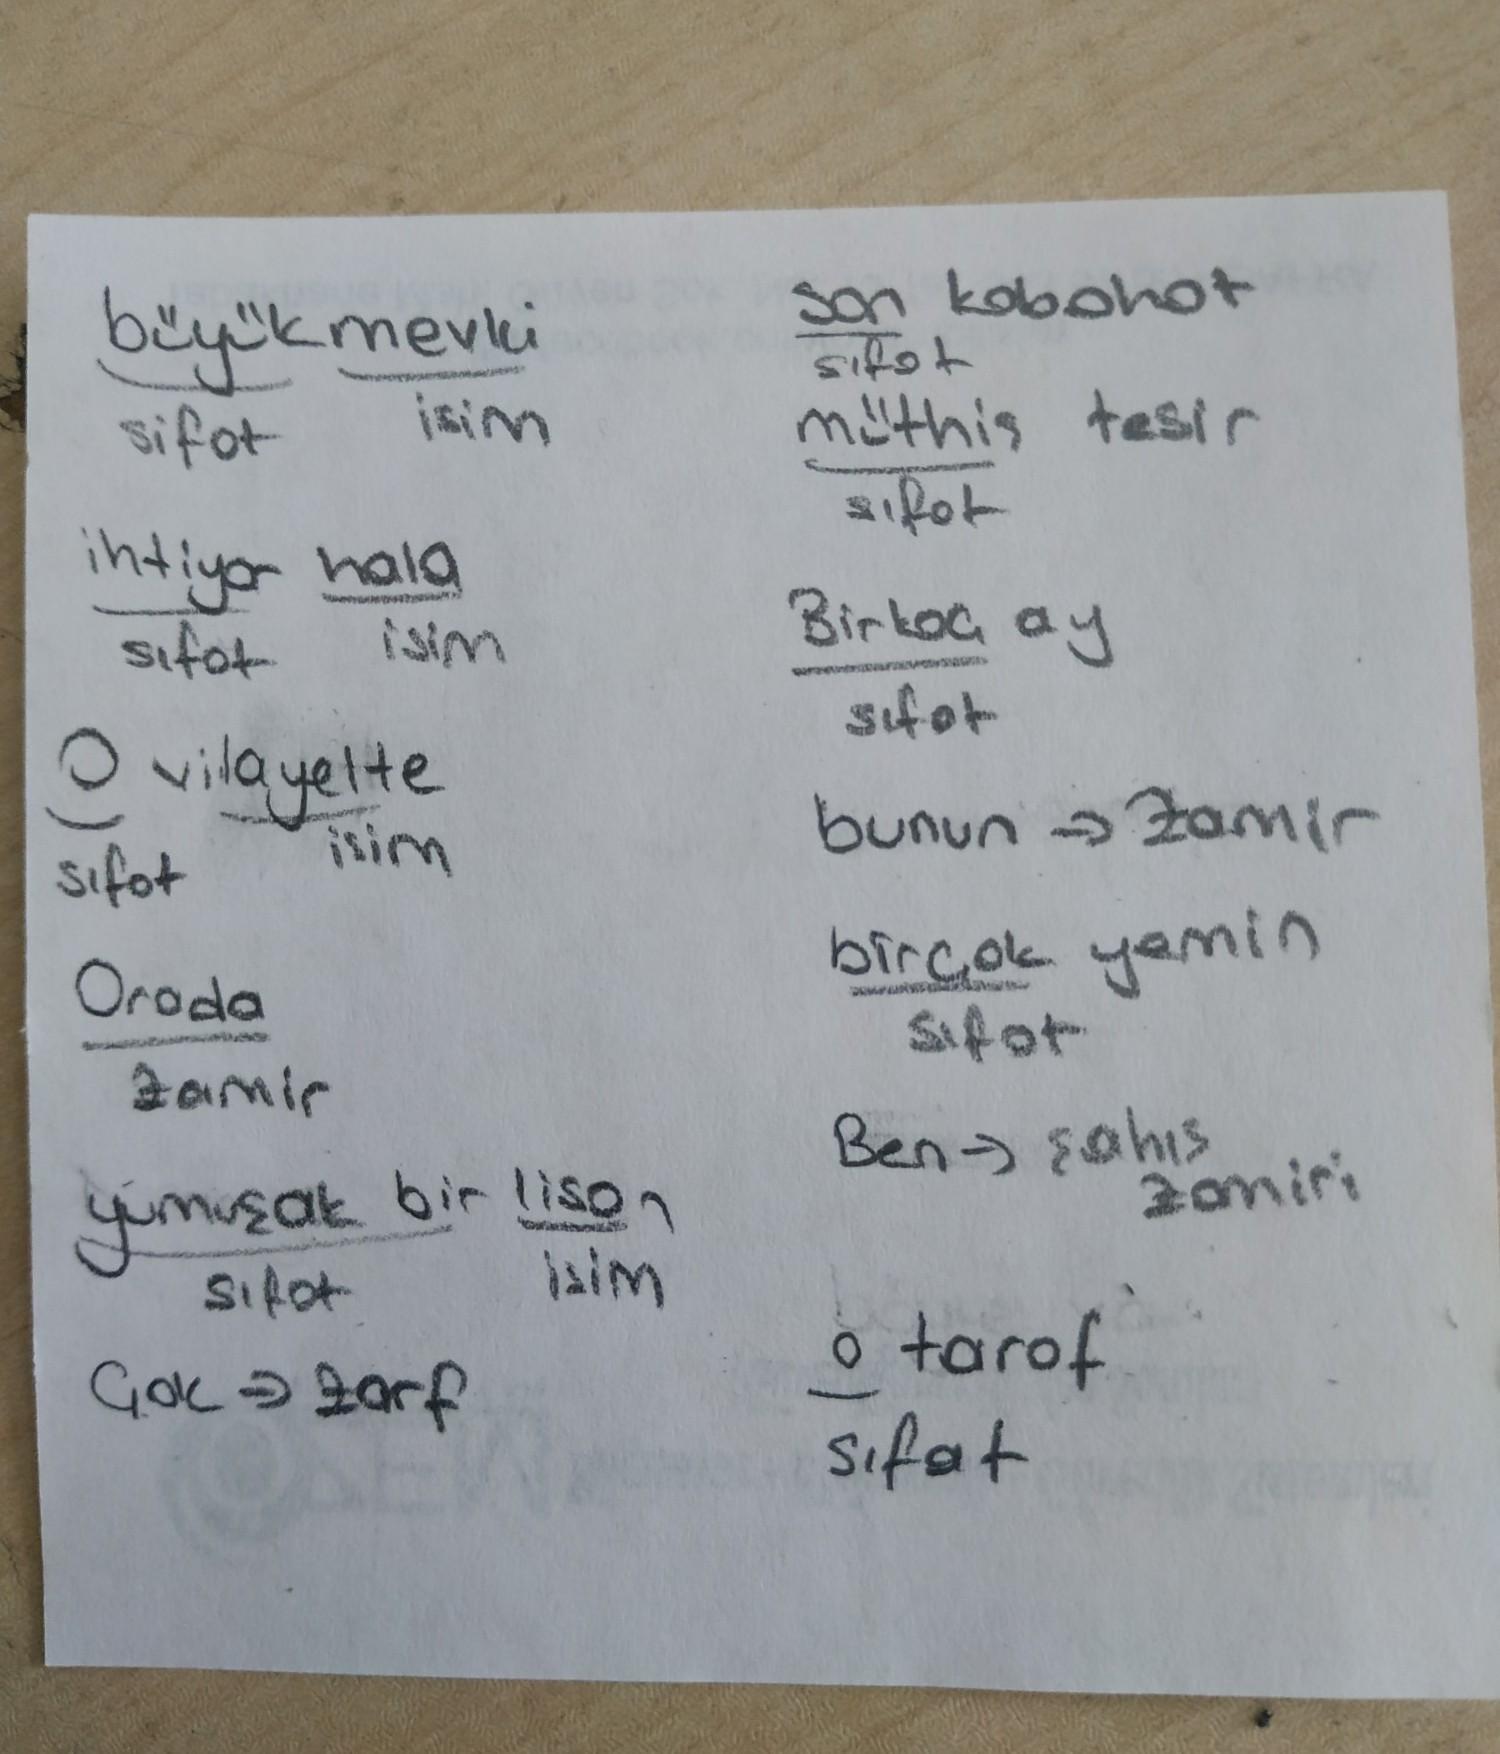 büyük mevki
sifat isim
ihtiyar hala
sıfat isim
O vilayette
sıfat isim
Orada
zamir
yumuşak bir lisan
sıfat isim
Çok → zarf
son kabahat
sıfat
müthiş tesir
sıfat
Birkaç ay
sıfat
bunun → zamir
birçok yemin
sıfat
Ben → şahıs
zamiri
o taraf
sıfat